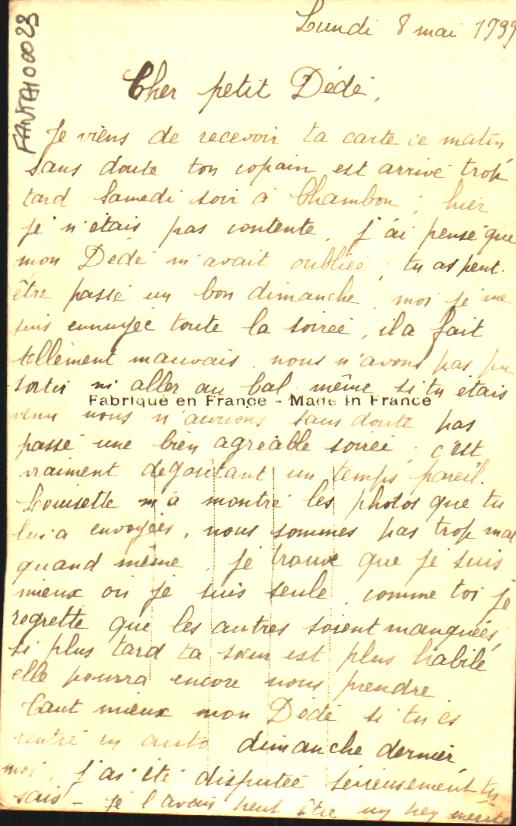 FANTAI00023
Lundi 8 mai 1939
Cher petit Dédé,
Je viens de recevoir ta carte ce matin
sans doute ton copain est arrivé trop
tard Samedi soir à Chambon ; hier
je n'étais pas contente, j'ai pensé que
mon Dédé m'avait oubliée, tu as peut-
être passé un bon dimanche, moi je me
suis ennuyée toute la soirée, il a fait
tellement mauvais nous n'avons pas pu
sortir ni aller au bal même si tu étais
Fabriqué en France - Made in France
venu nous n'aurions sans doute pas
passé une bien agréable soirée ; c'est
vraiment dégoûtant un temps pareil.
Louisette m'a montré les photos que tu
lui a envoyées, nous sommes pas trop mal
quand même, je trouve que je suis
mieux où je suis seule, comme toi je
regrette que les autres soient manquées,
si plus tard ta sœur est plus habile
elle pourra encore nous prendre
Tant mieux mon Dédé si tu es
rentré en auto dimanche dernier,
moi, j'ai été disputée sérieusement tu
sais - je l'avais peut être un peu mérité